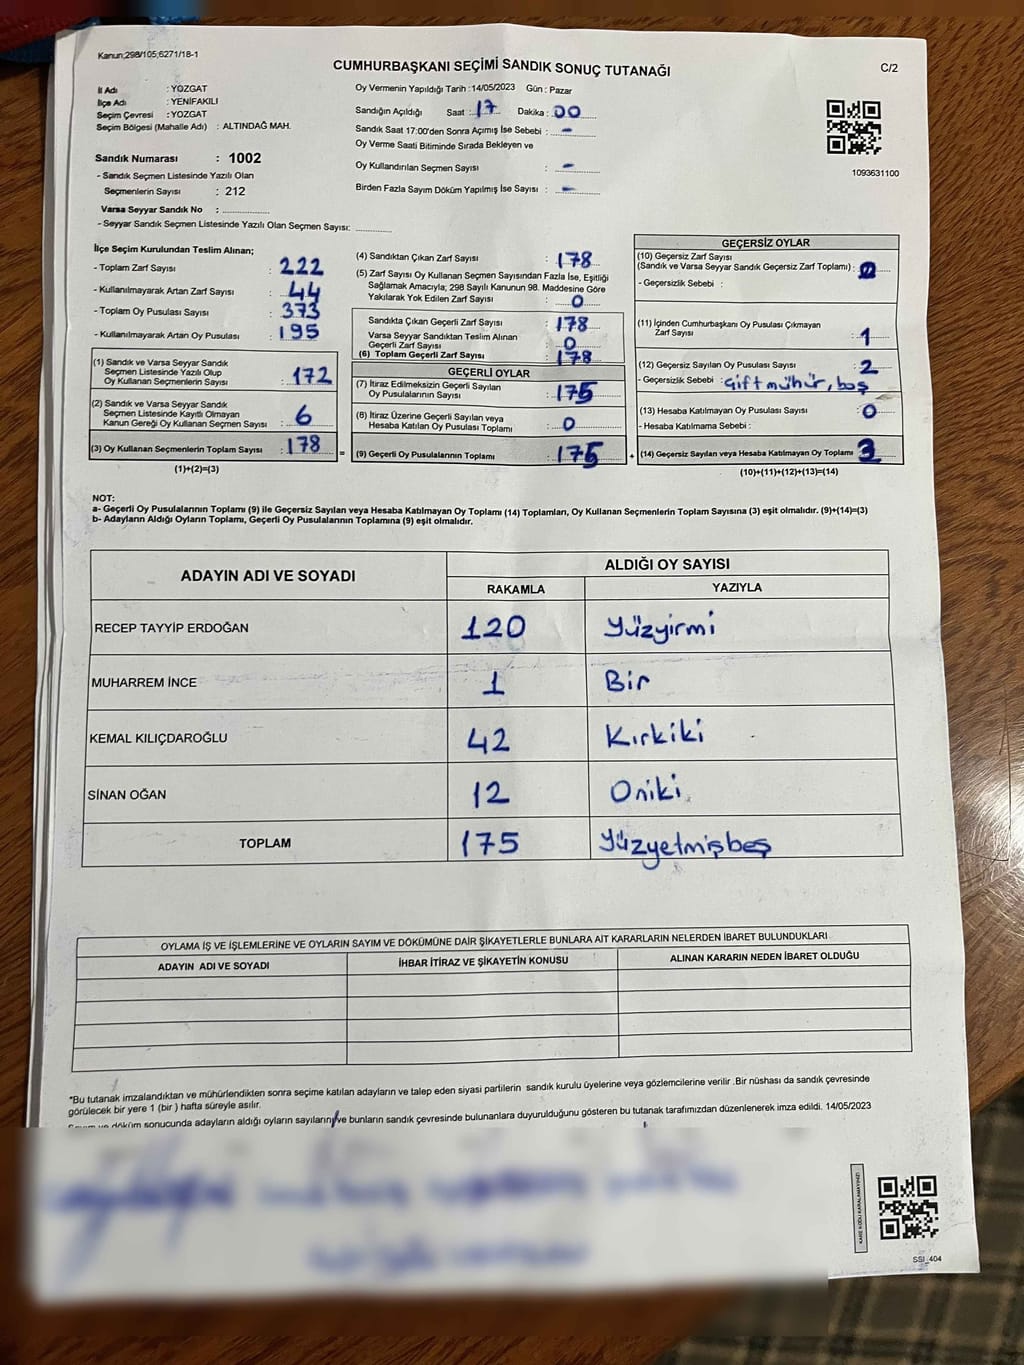 Kanun;298/105;6271/18-1
CUMHURBAŞKANI SEÇİMİ SANDIK SONUÇ TUTANAĞI
C/2
İl Adı : YOZGAT
İlçe Adı : YENİFAKILI
Seçim Çevresi : YOZGAT
Seçim Bölgesi (Mahalle Adı) : ALTINDAĞ MAH.
Sandık Numarası : 1002
- Sandık Seçmen Listesinde Yazılı Olan
Seçmenlerin Sayısı : 212
Varsa Seyyar Sandık No :
- Seyyar Sandık Seçmen Listesinde Yazılı Olan Seçmen Sayısı:
Oy Vermenin Yapıldığı Tarih :14/05/2023 Gün : Pazar
Sandığın Açıldığı Saat : 17 Dakika : 00
Sandık Saat 17:00'den Sonra Açımış İse Sebebi : -
Oy Verme Saati Bitiminde Sırada Bekleyen ve
Oy Kullandırılan Seçmen Sayısı : -
Birden Fazla Sayım Döküm Yapılmış İse Sayısı : -
1093631100
İlçe Seçim Kurulundan Teslim Alınan;
- Toplam Zarf Sayısı : 222
- Kullanılmayarak Artan Zarf Sayısı : 44
- Toplam Oy Pusulası Sayısı : 373
- Kullanılmayarak Artan Oy Pusulası : 195
(1) Sandık ve Varsa Seyyar Sandık
Seçmen Listesinde Yazılı Olup
Oy Kullanan Seçmenlerin Sayısı : 172
(2) Sandık ve Varsa Seyyar Sandık
Seçmen Listesinde Kayıtlı Olmayan
Kanun Gereği Oy Kullanan Seçmen Sayısı : 6
(3) Oy Kullanan Seçmenlerin Toplam Sayısı : 178
(1)+(2)=(3)
=
(4) Sandıktan Çıkan Zarf Sayısı : 178
(5) Zarf Sayısı Oy Kullanan Seçmen Sayısından Fazla İse, Eşitliği
Sağlamak Amacıyla; 298 Sayılı Kanunun 98. Maddesine Göre
Yakılarak Yok Edilen Zarf Sayısı : 0
Sandıkta Çıkan Geçerli Zarf Sayısı : 178
Varsa Seyyar Sandıktan Teslim Alınan
Geçerli Zarf Sayısı : 0
(6) Toplam Geçerli Zarf Sayısı : 178
GEÇERLİ OYLAR
(7) İtiraz Edilmeksizin Geçerli Sayılan
Oy Pusulalarının Sayısı : 175
(8) İtiraz Üzerine Geçerli Sayılan veya
Hesaba Katılan Oy Pusulası Toplamı : 0
(9) Geçerli Oy Pusulalarının Toplamı : 175
+
GEÇERSİZ OYLAR
(10) Geçersiz Zarf Sayısı
(Sandık ve Varsa Seyyar Sandık Geçersiz Zarf Toplamı) : 0
- Geçersizlik Sebebi :
(11) İçinden Cumhurbaşkanı Oy Pusulası Çıkmayan
Zarf Sayısı : 1
(12) Geçersiz Sayılan Oy Pusulası Sayısı : 2
- Geçersizlik Sebebi : Çift mühür, boş
(13) Hesaba Katılmayan Oy Pusulası Sayısı : 0
- Hesaba Katılmama Sebebi :
(14) Geçersiz Sayılan veya Hesaba Katılmayan Oy Toplamı : 3
(10)+(11)+(12)+(13)=(14)
NOT:
a- Geçerli Oy Pusulalarının Toplamı (9) ile Geçersiz Sayılan veya Hesaba Katılmayan Oy Toplamı (14) Toplamları, Oy Kullanan Seçmenlerin Toplam Sayısına (3) eşit olmalıdır. (9)+(14)=(3)
b- Adayların Aldığı Oyların Toplamı, Geçerli Oy Pusulalarının Toplamına (9) eşit olmalıdır.
ADAYIN ADI VE SOYADI
ALDIĞI OY SAYISI
RAKAMLA YAZIYLA
RECEP TAYYİP ERDOĞAN 120 Yüzyirmi
MUHARREM İNCE 1 Bir
KEMAL KILIÇDAROĞLU 42 Kırkiki
SİNAN OĞAN 12 Oniki
TOPLAM 175 Yüzyetmişbeş
OYLAMA İŞ VE İŞLEMLERİNE VE OYLARIN SAYIM VE DÖKÜMÜNE DAİR ŞİKAYETLERLE BUNLARA AİT KARARLARIN NELERDEN İBARET BULUNDUKLARI
ADAYIN ADI VE SOYADI İHBAR İTİRAZ VE ŞİKAYETİN KONUSU ALINAN KARARIN NEDEN İBARET OLDUĞU
*Bu tutanak imzalandıktan ve mühürlendikten sonra seçime katılan adayların ve talep eden siyasi partilerin sandık kurulu üyelerine veya gözlemcilerine verilir .Bir nüshası da sandık çevresinde
görülecek bir yere 1 (bir ) hafta süreyle asılır.
Sayım ve döküm sonucunda adayların aldığı oyların sayılarını ve bunların sandık çevresinde bulunanlara duyurulduğunu gösteren bu tutanak tarafımızdan düzenlenerek imza edildi. 14/05/2023
KARE KODU KARALAMAYINIZ!
SSI_404